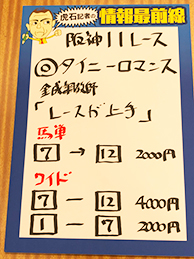 虎石記者の
情報最前線
阪神11レース
◎タイニーロマンス
「レースが上手」
馬単
7 → 12 2000円
ワイド
7 − 12 4000円
1 − 7 2000円